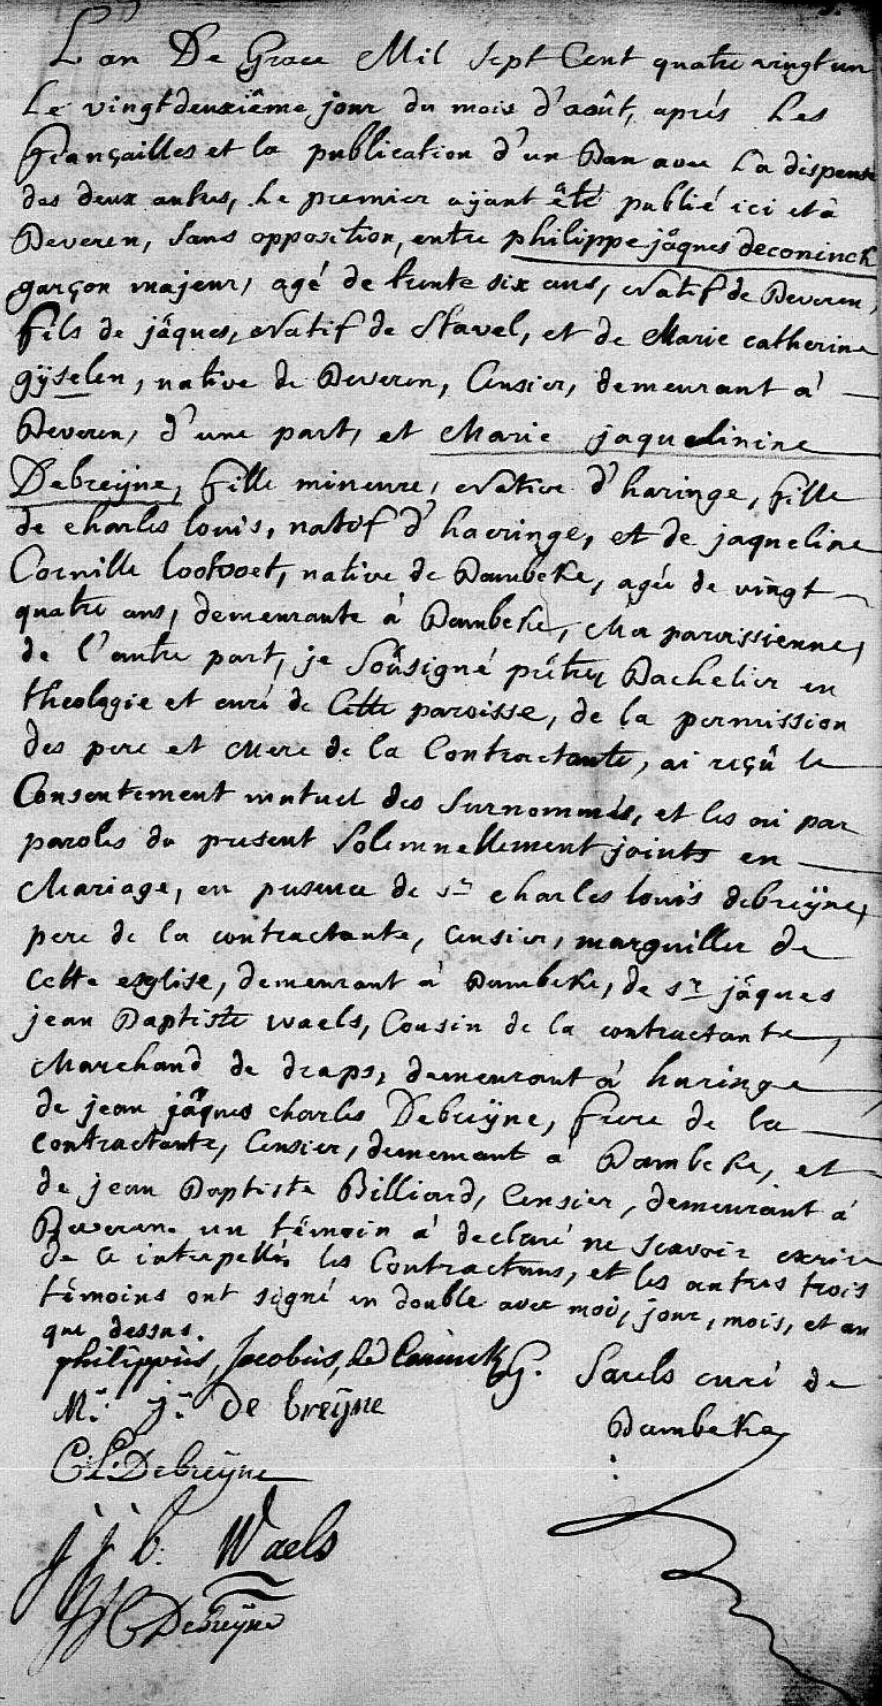 L'an De Grace Mil Sept Cent quatre vingt un
Le vingt deuxiême jour du mois d'août, aprés Les
fiançailles et la publication d'un Ban avec La dispense
des deux autres, Le premier aÿant êtê publié ici et à
Beveren, sans opposition, entre philippe jâques deconinck
garçon majeur, agé de trente six ans, Natif de Beveren,
fils de jâques, Natif de Stavel, et de Marie catherine
gÿselen, native de Beveren, Censier, demeurant à
Beveren, d'une part, et Marie jaquelinine
Debreÿne, fille mineure, Native d'haringe, fille
de charles louis, natif d'haeringe, et de jaqueline
Cornille lootvoet, native de Bambeke, agée de vingt
quatre ans, demeurante à Bambeke, Ma paroissienne,
de l'autre part, je soûsigné prêtre Bachelier en
theologie et curé de Cette paroisse, de la permission
des pere et Mere de la Contractante, ai reçû le
Consentement mutuel des surnommés, et les ai par
paroles du present Solemnellement joints en
Mariage, en presence de sr charles louis debreÿne,
pere de la contractante, censier, marguiller de
cette esglise, demeurant à Bambeke, de sr jâques
jean Baptiste waels, Cousin de la contractante,
Marchand de draps, demeurant à haringe
de jean jâques charles Debreÿne, frere de la
contractante, Censier, demeurant à Bambeke, et
de jean Baptiste Billiard, Censier, demeurant à
Beveren. un têmoin à declaré ne scavoir escrire
de ce interpellé, les Contractans, et les autres trois
têmoins ont signé en double avec moi, jour, mois, et an
que dessus.
philippus, Jacobus, de Coninck G. Saels curé de
M: j: De breÿne Bambeke
C:L: Debreÿne
j j b. Waels
JJC Debreÿne